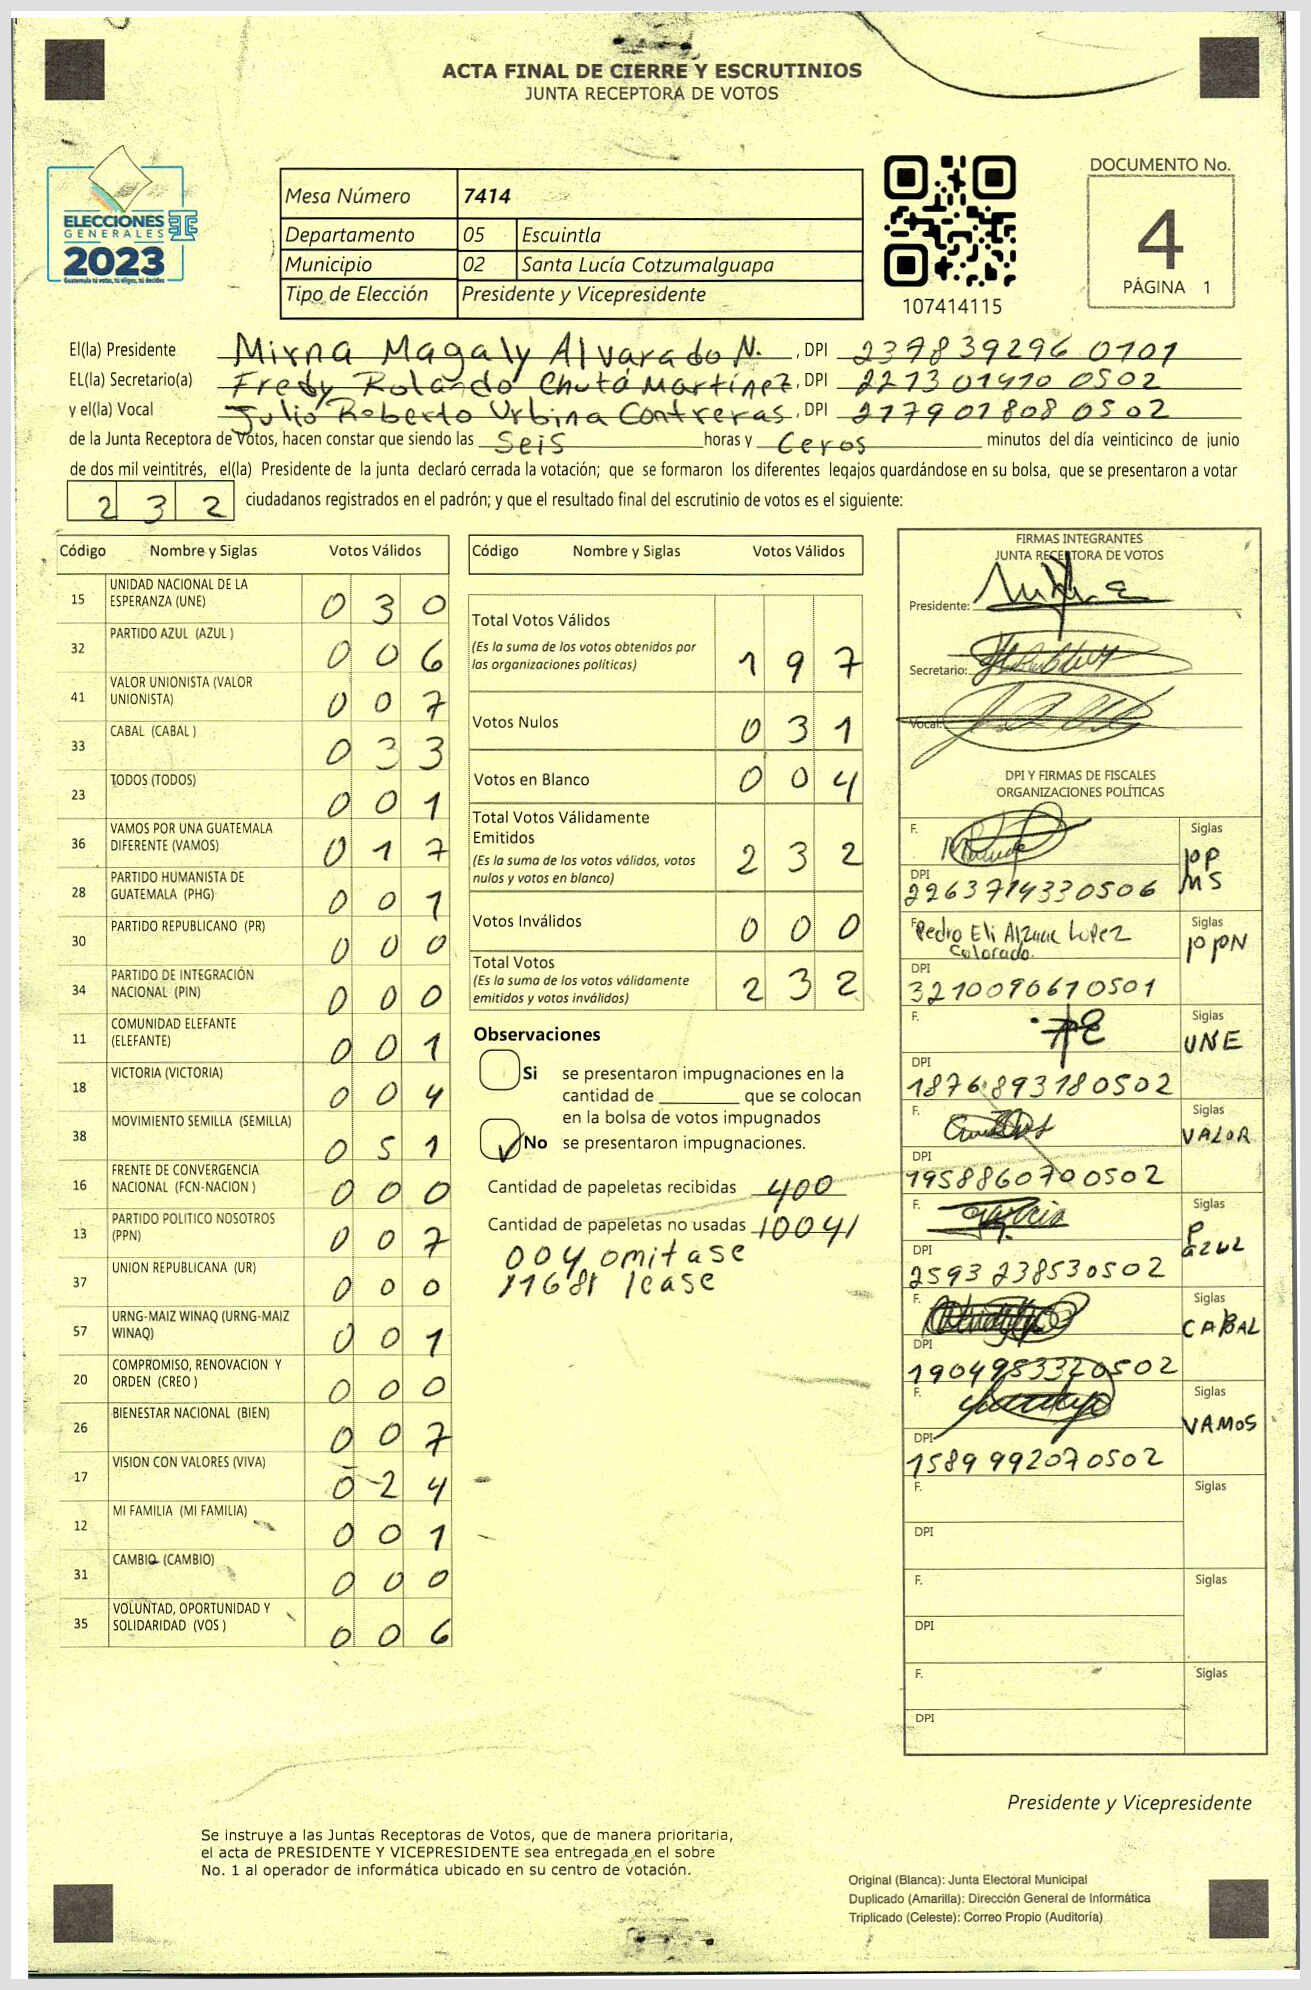 ACTA FINAL DE CIERRE Y ESCRUTINIOS
JUNTA RECEPTORA DE VOTOS
ELECCIONES
GENERALES
2023
Guatemala tú votas, tú eliges, tú decides
Mesa Número 7414
Departamento 05 Escuintla
Municipio 02 Santa Lucía Cotzumalguapa
Tipo de Elección Presidente y Vicepresidente
107414115
DOCUMENTO No.
4
PÁGINA 1
El(la) Presidente Mirna Magaly Alvarado N. , DPI 237839296 0101
EL(la) Secretario(a) Fredy Rolando Chutá Martínez, DPI 221301410 0502
y el(la) Vocal Julio Roberto Urbina Contreras, DPI 217901808 0502
de la Junta Receptora de Votos, hacen constar que siendo las Seis horas y Ceros minutos del día veinticinco de junio
de dos mil veintitrés, el(la) Presidente de la junta declaró cerrada la votación; que se formaron los diferentes legajos quardándose en su bolsa, que se presentaron a votar
232 ciudadanos registrados en el padrón; y que el resultado final del escrutinio de votos es el siguiente:
Código Nombre y Siglas Votos Válidos
15 UNIDAD NACIONAL DE LA ESPERANZA (UNE) 030
32 PARTIDO AZUL (AZUL ) 006
41 VALOR UNIONISTA (VALOR UNIONISTA) 007
33 CABAL (CABAL ) 033
23 TODOS (TODOS) 001
36 VAMOS POR UNA GUATEMALA DIFERENTE (VAMOS) 017
28 PARTIDO HUMANISTA DE GUATEMALA (PHG) 001
30 PARTIDO REPUBLICANO (PR) 000
34 PARTIDO DE INTEGRACIÓN NACIONAL (PIN) 000
11 COMUNIDAD ELEFANTE (ELEFANTE) 001
18 VICTORIA (VICTORIA) 004
38 MOVIMIENTO SEMILLA (SEMILLA) 051
16 FRENTE DE CONVERGENCIA NACIONAL (FCN-NACION ) 000
13 PARTIDO POLITICO NOSOTROS (PPN) 007
37 UNION REPUBLICANA (UR) 000
57 URNG-MAIZ WINAQ (URNG-MAIZ WINAQ) 001
20 COMPROMISO, RENOVACION Y ORDEN (CREO ) 000
26 BIENESTAR NACIONAL (BIEN) 007
17 VISION CON VALORES (VIVA) 024
12 MI FAMILIA (MI FAMILIA) 001
31 CAMBIO (CAMBIO) 000
35 VOLUNTAD, OPORTUNIDAD Y SOLIDARIDAD (VOS ) 006
Código Nombre y Siglas Votos Válidos
Total Votos Válidos
(Es la suma de los votos obtenidos por
las organizaciones políticas) 197
Votos Nulos 031
Votos en Blanco 004
Total Votos Válidamente
Emitidos
(Es la suma de los votos válidos, votos
nulos y votos en blanco) 232
Votos Inválidos 000
Total Votos
(Es la suma de los votos válidamente
emitidos y votos inválidos) 232
Observaciones
Si se presentaron impugnaciones en la
cantidad de ________ que se colocan
en la bolsa de votos impugnados
No se presentaron impugnaciones.
Cantidad de papeletas recibidas 400
Cantidad de papeletas no usadas
004 omitase
lease
FIRMAS INTEGRANTES
JUNTA RECEPTORA DE VOTOS
Presidente:
Secretario:
Vocal:
DPI Y FIRMAS DE FISCALES
ORGANIZACIONES POLÍTICAS
F. Siglas
MS
DPI
2263714330506
F. Pedro Eli Lopez Siglas
Colorado.
DPI
3210090610501
F. Siglas
UNE
DPI
1876893180502
F. Siglas
VALOR
DPI
1958860700502
F. Siglas
P
azul
DPI
2593 238530502
F. Siglas
CABAL
DPI
1904983320502
F. Siglas
VAMOS
DPI
1589 992070502
F. Siglas
DPI
F. Siglas
DPI
F. Siglas
DPI
Presidente y Vicepresidente
Se instruye a las Juntas Receptoras de Votos, que de manera prioritaria,
el acta de PRESIDENTE Y VICEPRESIDENTE sea entregada en el sobre
No. 1 al operador de informática ubicado en su centro de votación.
Original (Blanca): Junta Electoral Municipal
Duplicado (Amarilla): Dirección General de Informática
Triplicado (Celeste): Correo Propio (Auditoría)